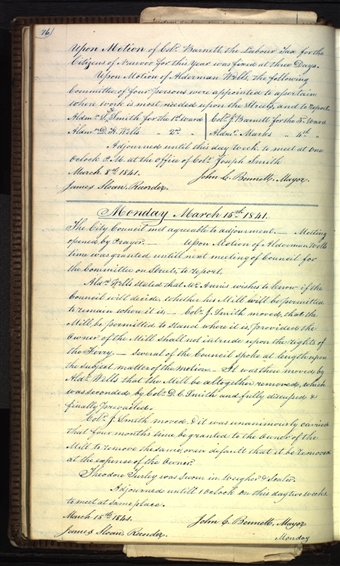 26
Upon Motion of Col. Barnett the Labour Tax for the
Citizens of Nauvoo for this year was fixed at three Days.
Upon Motion of Alderman Wells, the following
Committee of four persons were appointed to ascertain
when work is most needed upon the Streets, and to report.
Aldn. S. Smith for the 1st ward Col. J. Barnett for the 3d Ward
Aldn. D. H. Wells - 2d. - Aldn. Marks - 4th -
Adjourned untill this day week to meet at one
Oclock P.M. at the office of Col. Joseph Smith
March 8th 1841. John C. Bennett, Mayor
James Sloan, Recorder.
Monday March 15th 1841.
The City Council met agreeable to adjournment. — Meeting
opened by Prayer. — Upon Motion of Alderman Wells
time was granted untill next meeting of Council for
the Committee on Streets to report.
Aldn. Wells stated that Mr. Annis wishes to know if the
Council will decide whether his Mill will be permitted
to remain where it is — Col. J. Smith moved, that the
Mill be permitted to stand where it is, provided the
Owner of the Mill shall not intrude upon the rights of
the Ferry. — Several of the Council spoke at length upon
the subject matter of the motion. — It was then moved by
Aldn. Wells that the Mill be altogether removed, which
was seconded by Col. D. C. Smith and fully discussed &
finally prevailed.
Col. J. Smith moved & it was unanimously carried
that four months time be granted to the owner of the
Mill to remove the same, even default that it be removed
at the expense of the Owner.
Theodore Turley was sworn in Weigher & Sealer.
Adjourned untill 1 oclock on this day two weeks
to meet at same place.
March 15th 1841. John C. Bennett, Mayor
James Sloan Recorder.
Monday